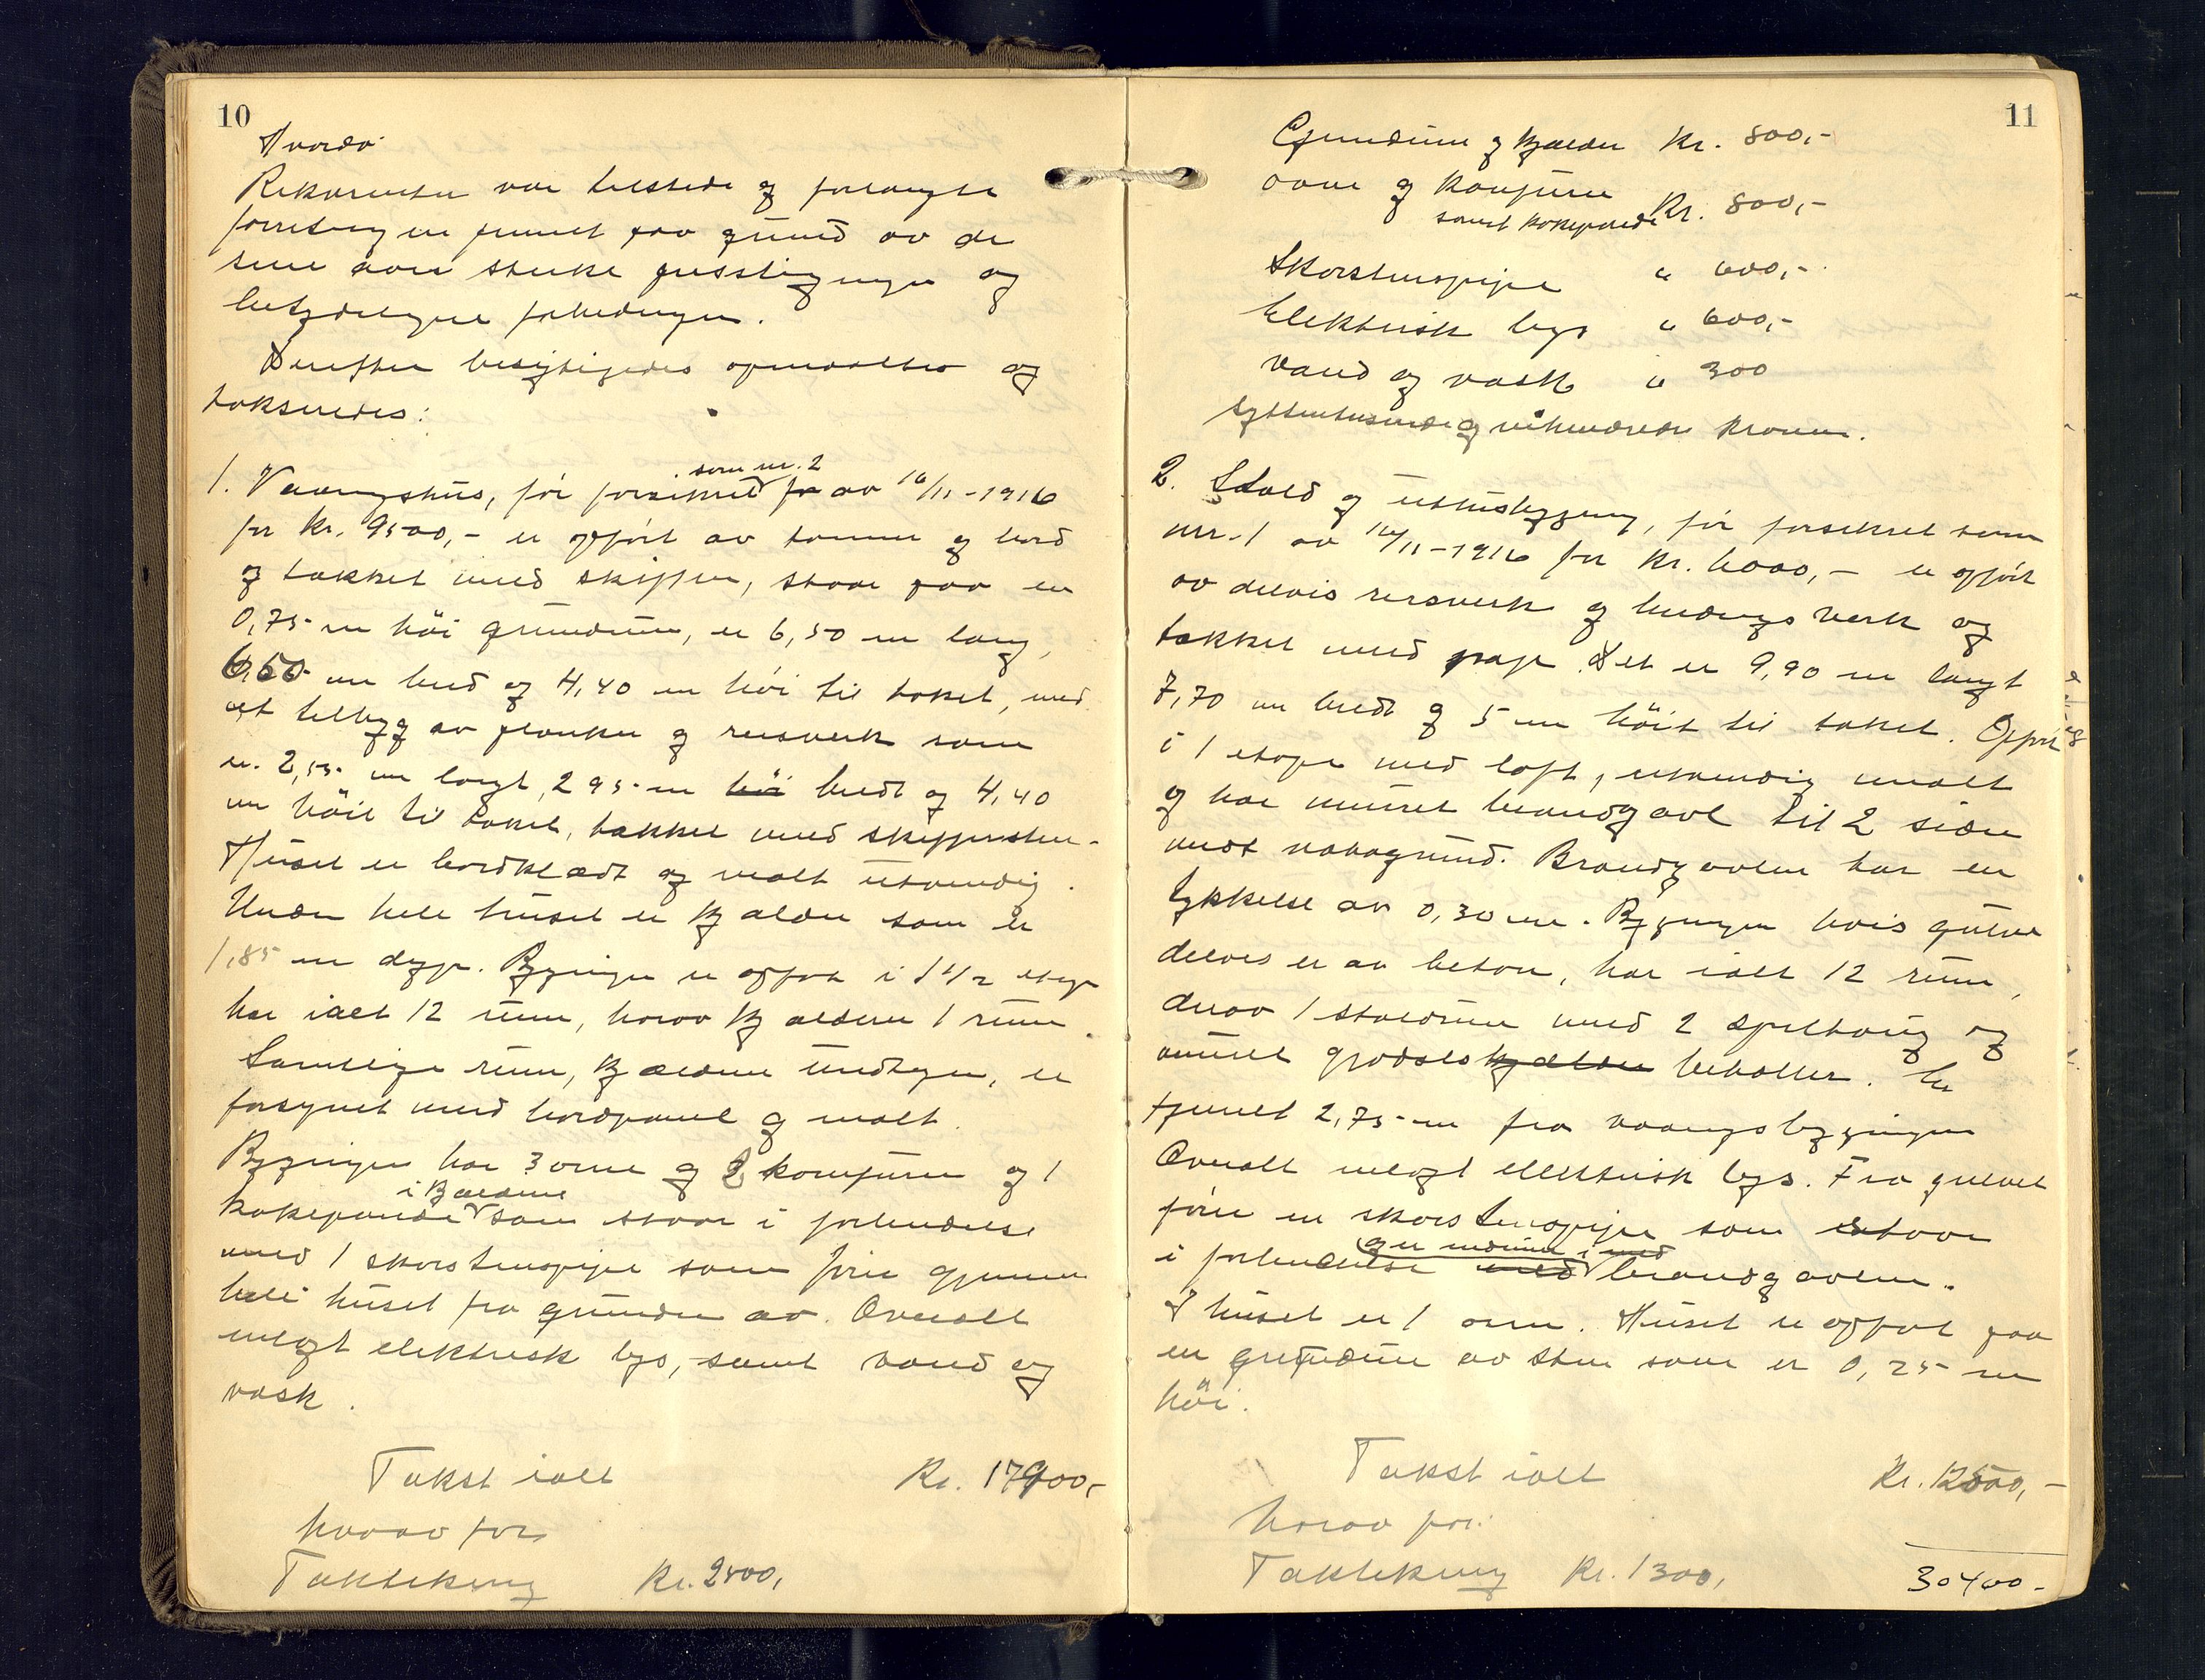 10
Hvorda
Rekvirenten var tilstede og forlangte
forretningen fremet paa grund av de
sene aars sterke prisstigninger og
betydelige forbedringer.
Derefter besigtigedes opmaaltes og
takseredes:
som nr. 2
1. Vaaningshus, før forsikret av 16/11-1916
for kr. 9500,- er opført av tømmer og bord
og tækket med skiffer, staar paa en
0,75 m høi grundmur, er 6,50 m lang,
6,50 m bred og 4,40 m høi til taket, med
et tilbygg av planker og reisverk som
er 2,55 m langt, 2 95 m høi bredt og 4,40
m høit til taket, tækket med skiffersten.
Huset er bordklædt og malt utvendig.
Under hele huset er kjælder som er
1,85 m dyp. Bygningen er opført i 1 1/2 etage
har ialt 12 rum, hvorav kjælderen 1 rum.
Samtlige rum, kjælderen undtagen, er
forsynet med bordpanel og malt.
Bygningen har 3 ovne og 2 komfurer og 1
i kjælderen
kokepande som staar i forbindelse
med 1 skorstenspipe som fører gjennem
hele huset fra grunden av. Overalt
indlagt elektrisk lys, samt vand og
vask.
Takst ialt Kr. 17900,-
hvorav for
Taktekning Kr. 2400,
11
Grundmur og kjælder Kr. 800,-
ovne og komfurer Kr. 800,-
samt kokepande
Skorstenspipe " 600,-
Elektrisk lys " 600,-
Vand og vask " 300
syttentusinde og nihundrede kroner.
2. Stald og uthusbygging, før forsikret som
nr. 1 av 16/11-1916 for kr. 6000,- er opført
av delvis reisverk og bindingsverk og
tækket med pap. Det er 9,90 m langt
7,70 m bredt og 5 m høit til taket. Opført
i 1 etage med loft, utvendig malt
og har muret brandgavl til 2 sider
mot nabogrund. Brandgavlen har en
tykkelse av 0,30 m. Bygningen hvis gulve
delvis er av beton, har ialt 12 rum,
derav 1 staldrum med 2 spiltaug og
muret gjødselskjælder beholder. Er
fjernet 2,75 m fra vaaningsbygningen
Overalt indlagt elektrisk lys. Fra gulvet
fører en skorstenspipe som staar
og er indmuret i med
i forbindelse med brandgavlen.
I huset er 1 ovn. Huset er opført paa
en grundmur av sten som er 0,25 m
høi.
Takst ialt Kr. 12500,-
hvorav for:
Taktekning Kr. 1300,
30400-